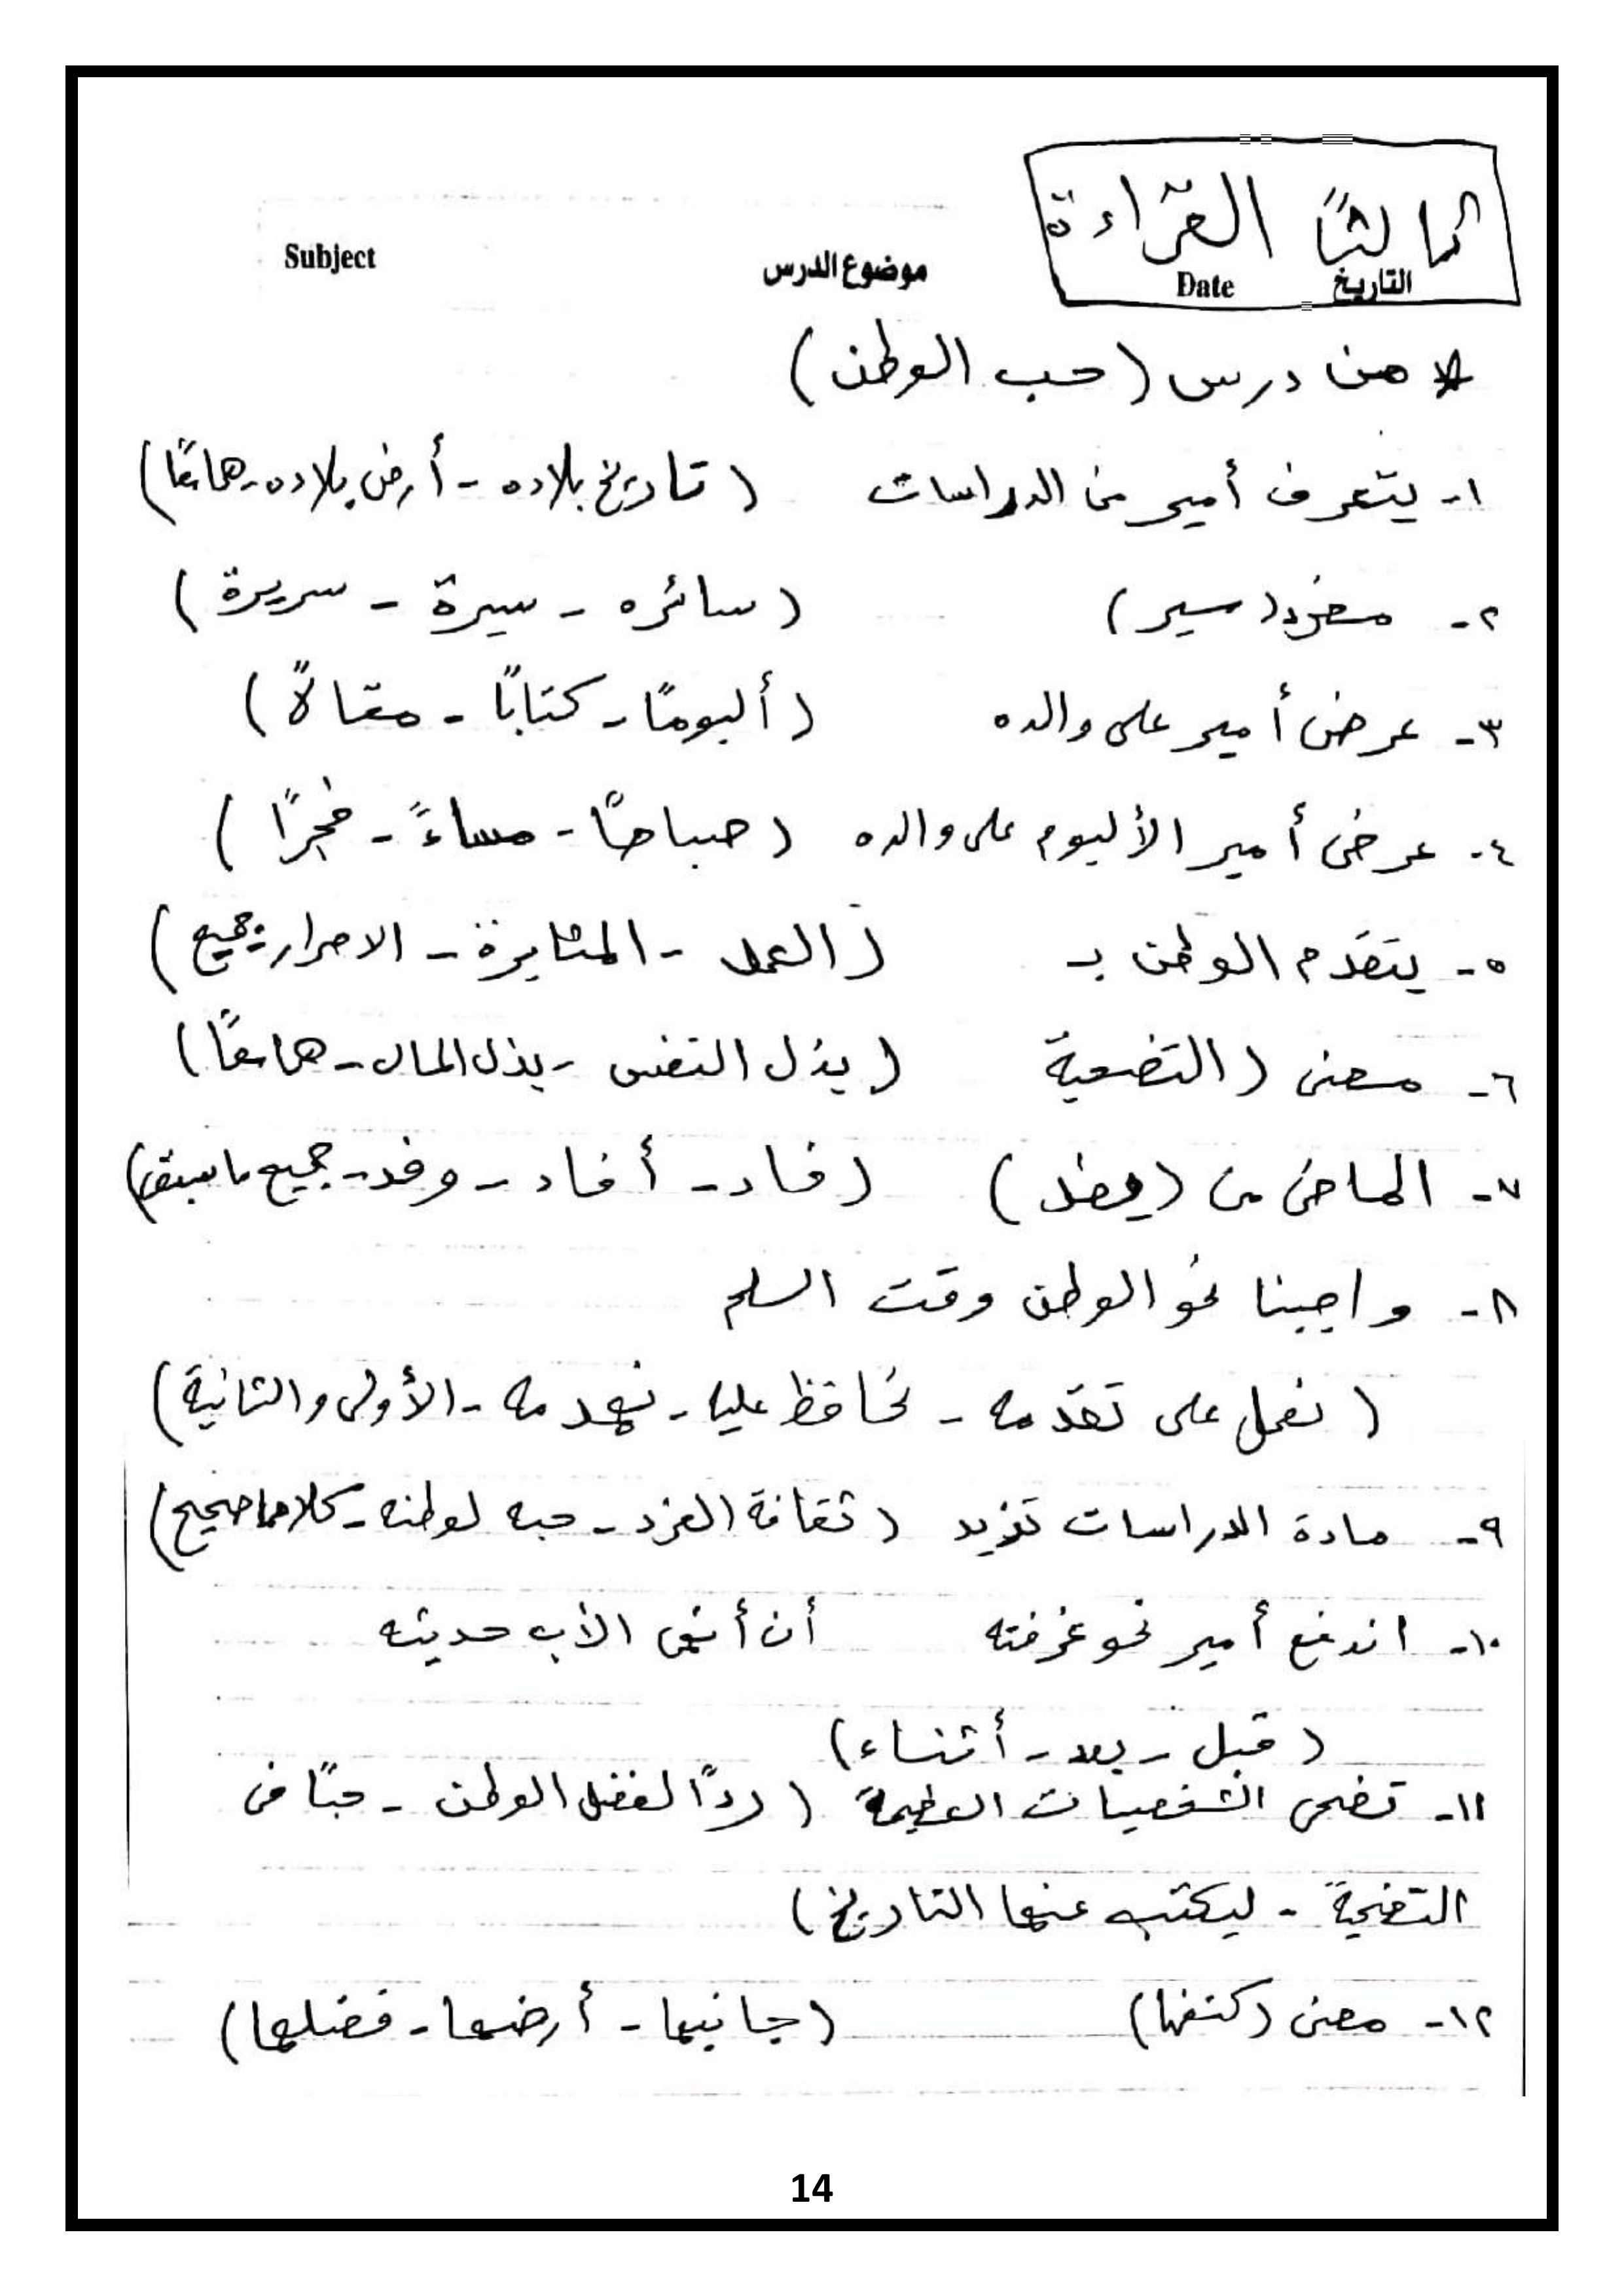 ثالثًا القراءة
التاريخ Date
موضوع الدرس
Subject
* من درس (حب الوطن)
١- يتعرف أمير من الدراسات (تاريخ بلاده - أرض بلاده - هما معًا)
٢- مفرد (سير) (سائره - سيرة - سريرة)
٣- عرض أمير على والده (ألبومًا - كتابًا - مقالًا)
٤- عرض أمير الألبوم على والده (صباحًا - مساءً - فجرًا)
٥- يتقدم الوطن بـ (العمل - المثابرة - الاصرار - جميع)
٦- معنى (التضحية (بذل النفس - بذل المال - هما معًا)
٧- الماضى من ( ) (فاد - أفاد - وفد - جميع ما سبق)
٨- واجبنا نحو الوطن وقت السلم
(نعمل على تقدمه - نحافظ عليه - نهدمه - الأولى والثانية)
٩- مادة الدراسات تزيد (ثقافة الفرد - حبه لوطنه - كلاهما صحيح)
١٠- اندفع أمير نحو غرفته أن أنهى الأب حديثه
(قبل - بعد - أثناء)
١١- تضحى الشخصيات العظيمة (ردًا لفضل الوطن - حبًا فى
التضحية - ليكتب عنها التاريخ)
١٢- معنى (كنفها) (جانبها - أرضها - فضلها)
14